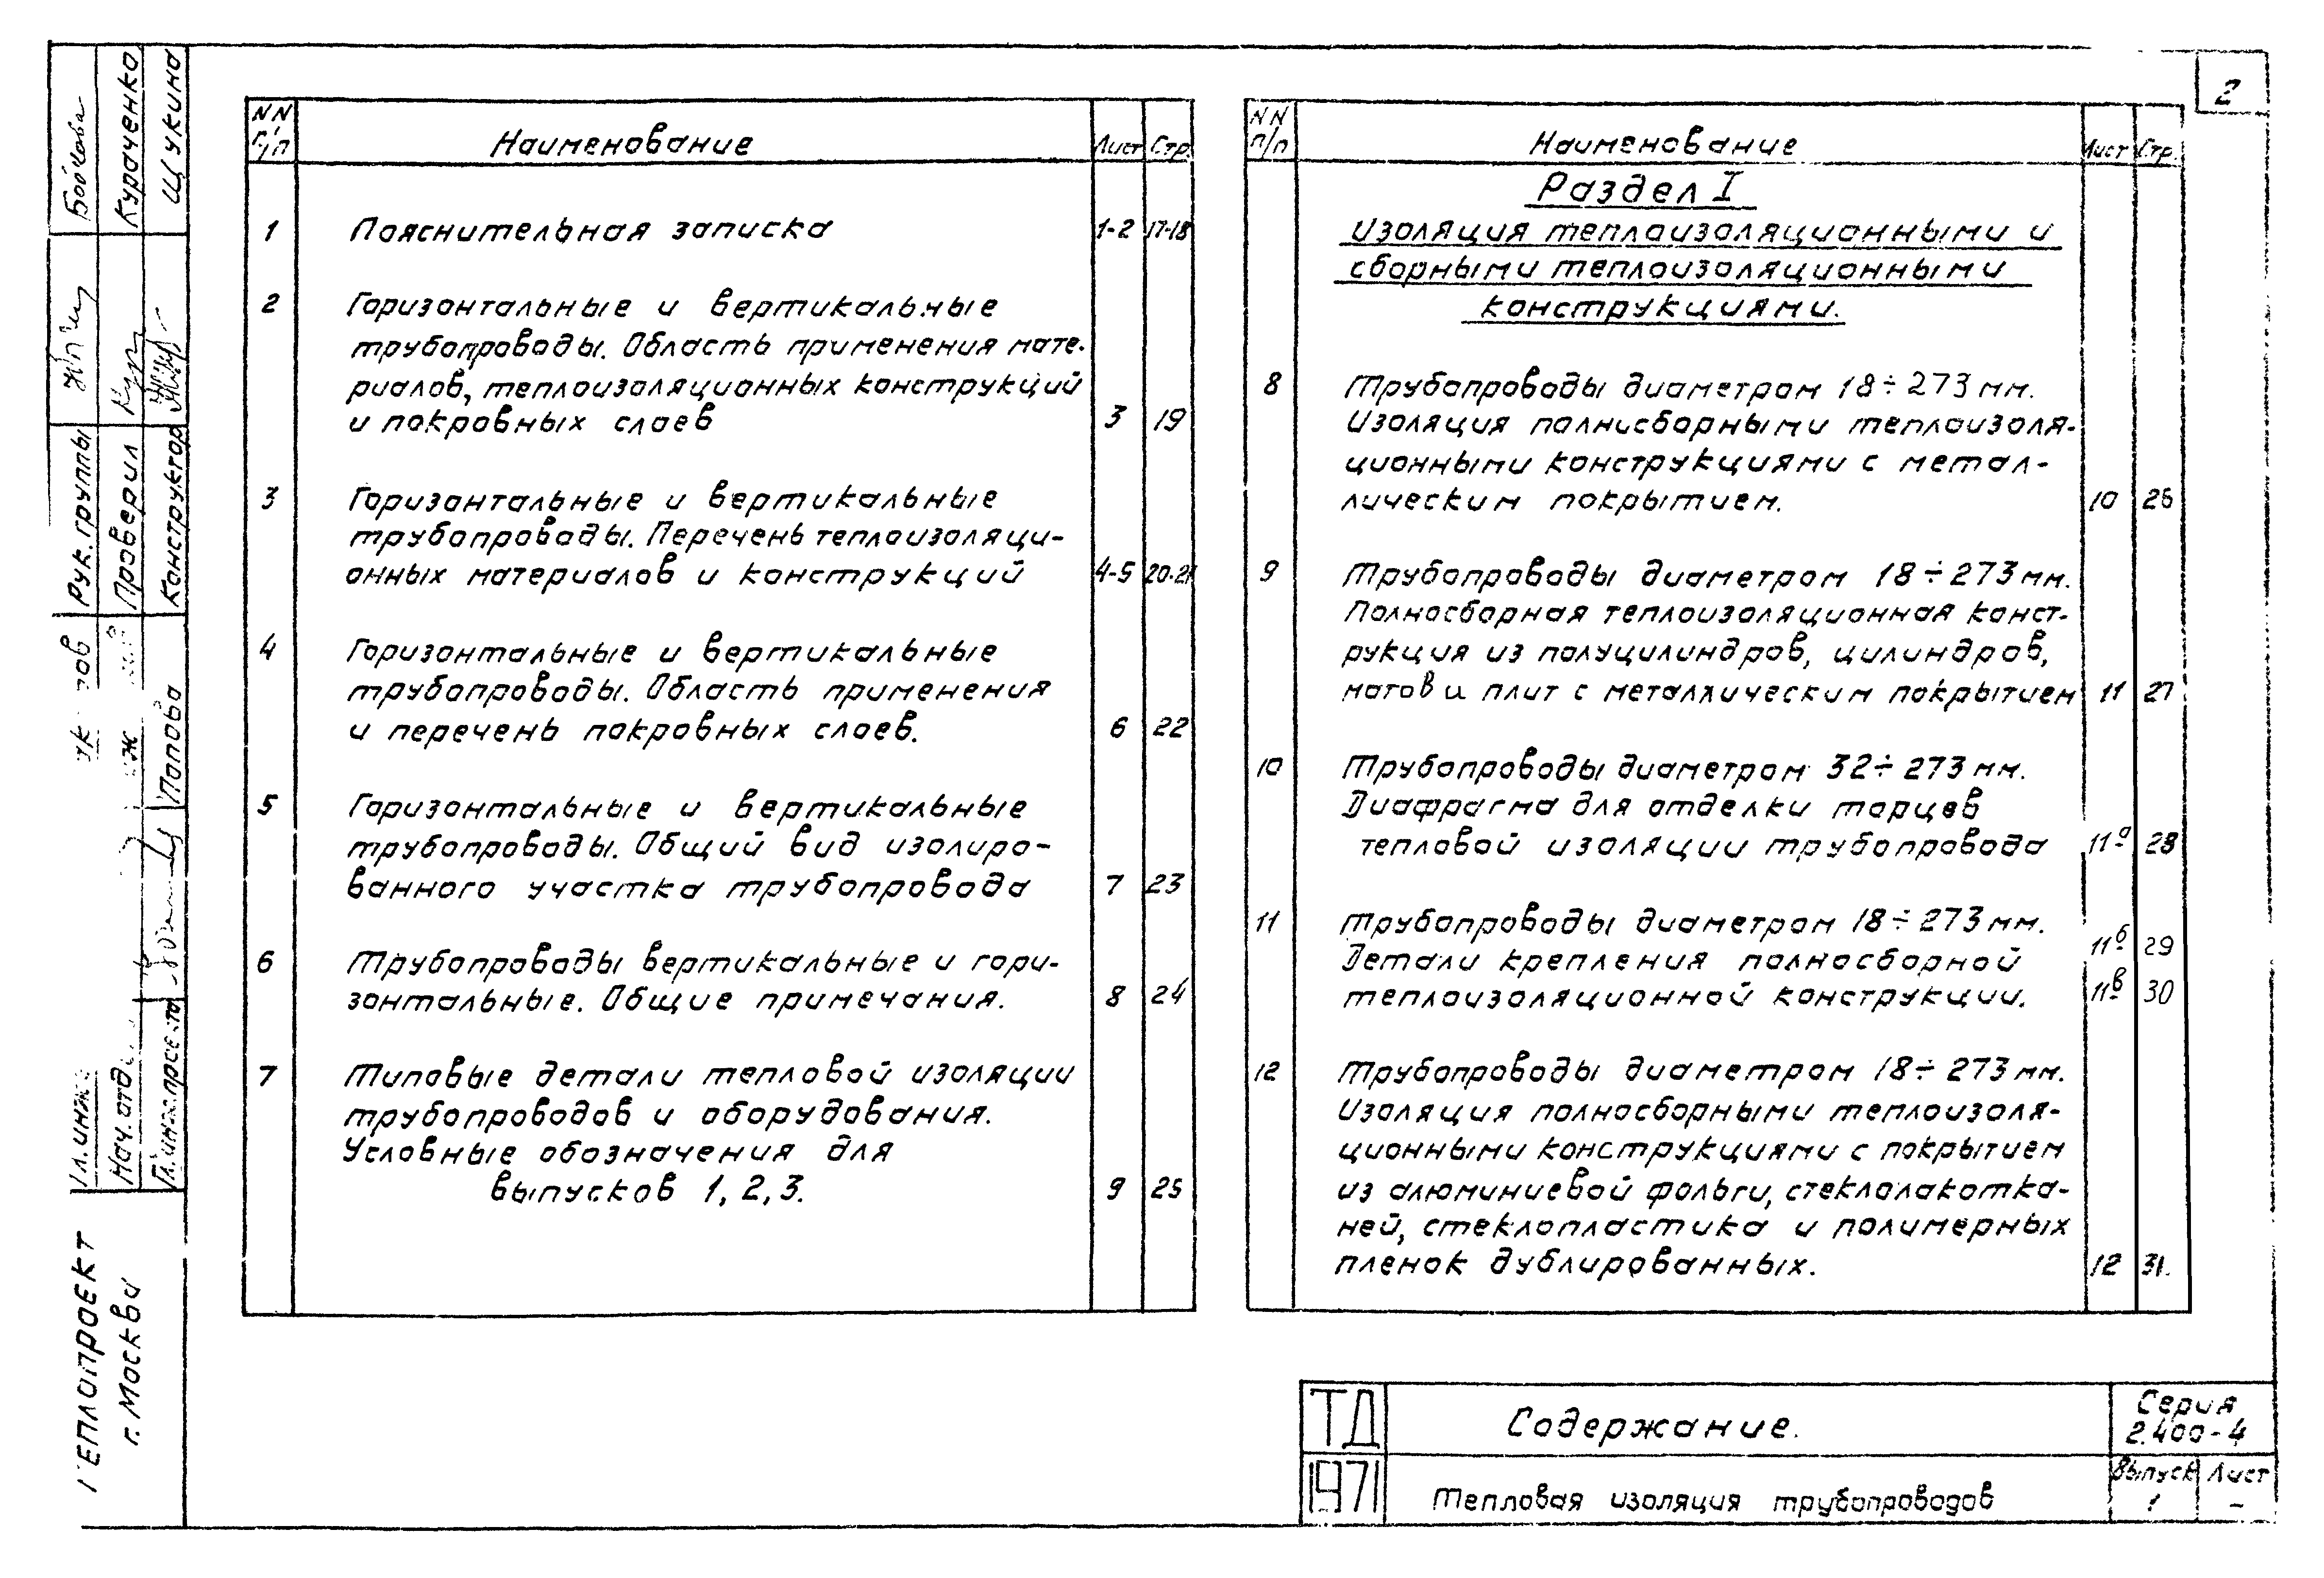 2
NN п/п Наименование Лист Стр.
1 Пояснительная записка 1-2 17-18
2 Горизонтальные и вертикальные
трубопроводы. Область применения мате-
риалов, теплоизоляционных конструкций
и покровных слоев 3 19
3 Горизонтальные и вертикальные
трубопроводы. Перечень теплоизоляци-
онных материалов и конструкций 4-5 20-21
4 Горизонтальные и вертикальные
трубопроводы. Область применения
и перечень покровных слоев. 6 22
5 Горизонтальные и вертикальные
трубопроводы. Общий вид изолиро-
ванного участка трубопровода 7 23
6 Трубопроводы вертикальные и гори-
зонтальные. Общие примечания. 8 24
7 Типовые детали тепловой изоляции
трубопроводов и оборудования.
Условные обозначения для
выпусков 1, 2, 3. 9 25
NN п/п Наименование Лист Стр.
Раздел I
Изоляция теплоизоляционными и
сборными теплоизоляционными
конструкциями.
8 Трубопроводы диаметром 18÷273 мм.
Изоляция полнисборными теплоизоля-
ционными конструкциями с метал-
лическим покрытием. 10 26
9 Трубопроводы диаметром 18÷273 мм.
Полносборная теплоизоляционная конст-
рукция из полуцилиндров, цилиндров,
матов и плит с металлическим покрытием 11 27
10 Трубопроводы диаметром 32÷273 мм.
Диафрагма для отделки торцев
тепловой изоляции трубопровода 11а 28
11 Трубопроводы диаметром 18÷273 мм.
Детали крепления полносборной 11б 29
теплоизоляционной конструкции. 11в 30
12 Трубопроводы диаметром 18÷273 мм.
Изоляция полносборными теплоизоля-
ционными конструкциями с покрытием
из алюминиевой фольги, стеклолакотка-
ней, стеклопластика и полимерных
пленок дублированных. 12 31.
ТД Содержание. Серия
2.400-4
1971 Тепловая изоляция трубопроводов Выпуск Лист
1 -
Гл. инж.
Нач. отд.
Гл. инж. проекта Попова
Рук. группы Бойкова
Проверил Кураченко
Конструктор Щукина
ТЕПЛОПРОЕКТ
г. Москва